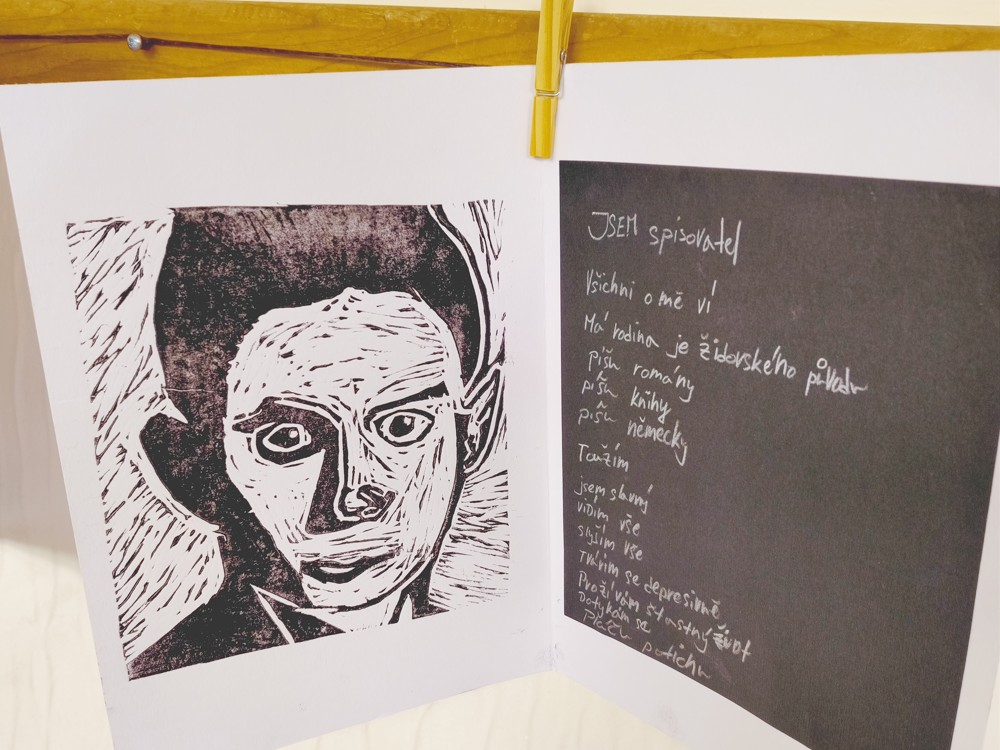 JSEM spisovatel
Všichni o mě ví
Má rodina je židovského původu
píšu romány
píšu knihy
píšu německy
Toužím
jsem slavný
vidím vše
slyším vše
Tvářím se depresivně
Prožívám šťastný život
Dotykám se
Pláču potichu